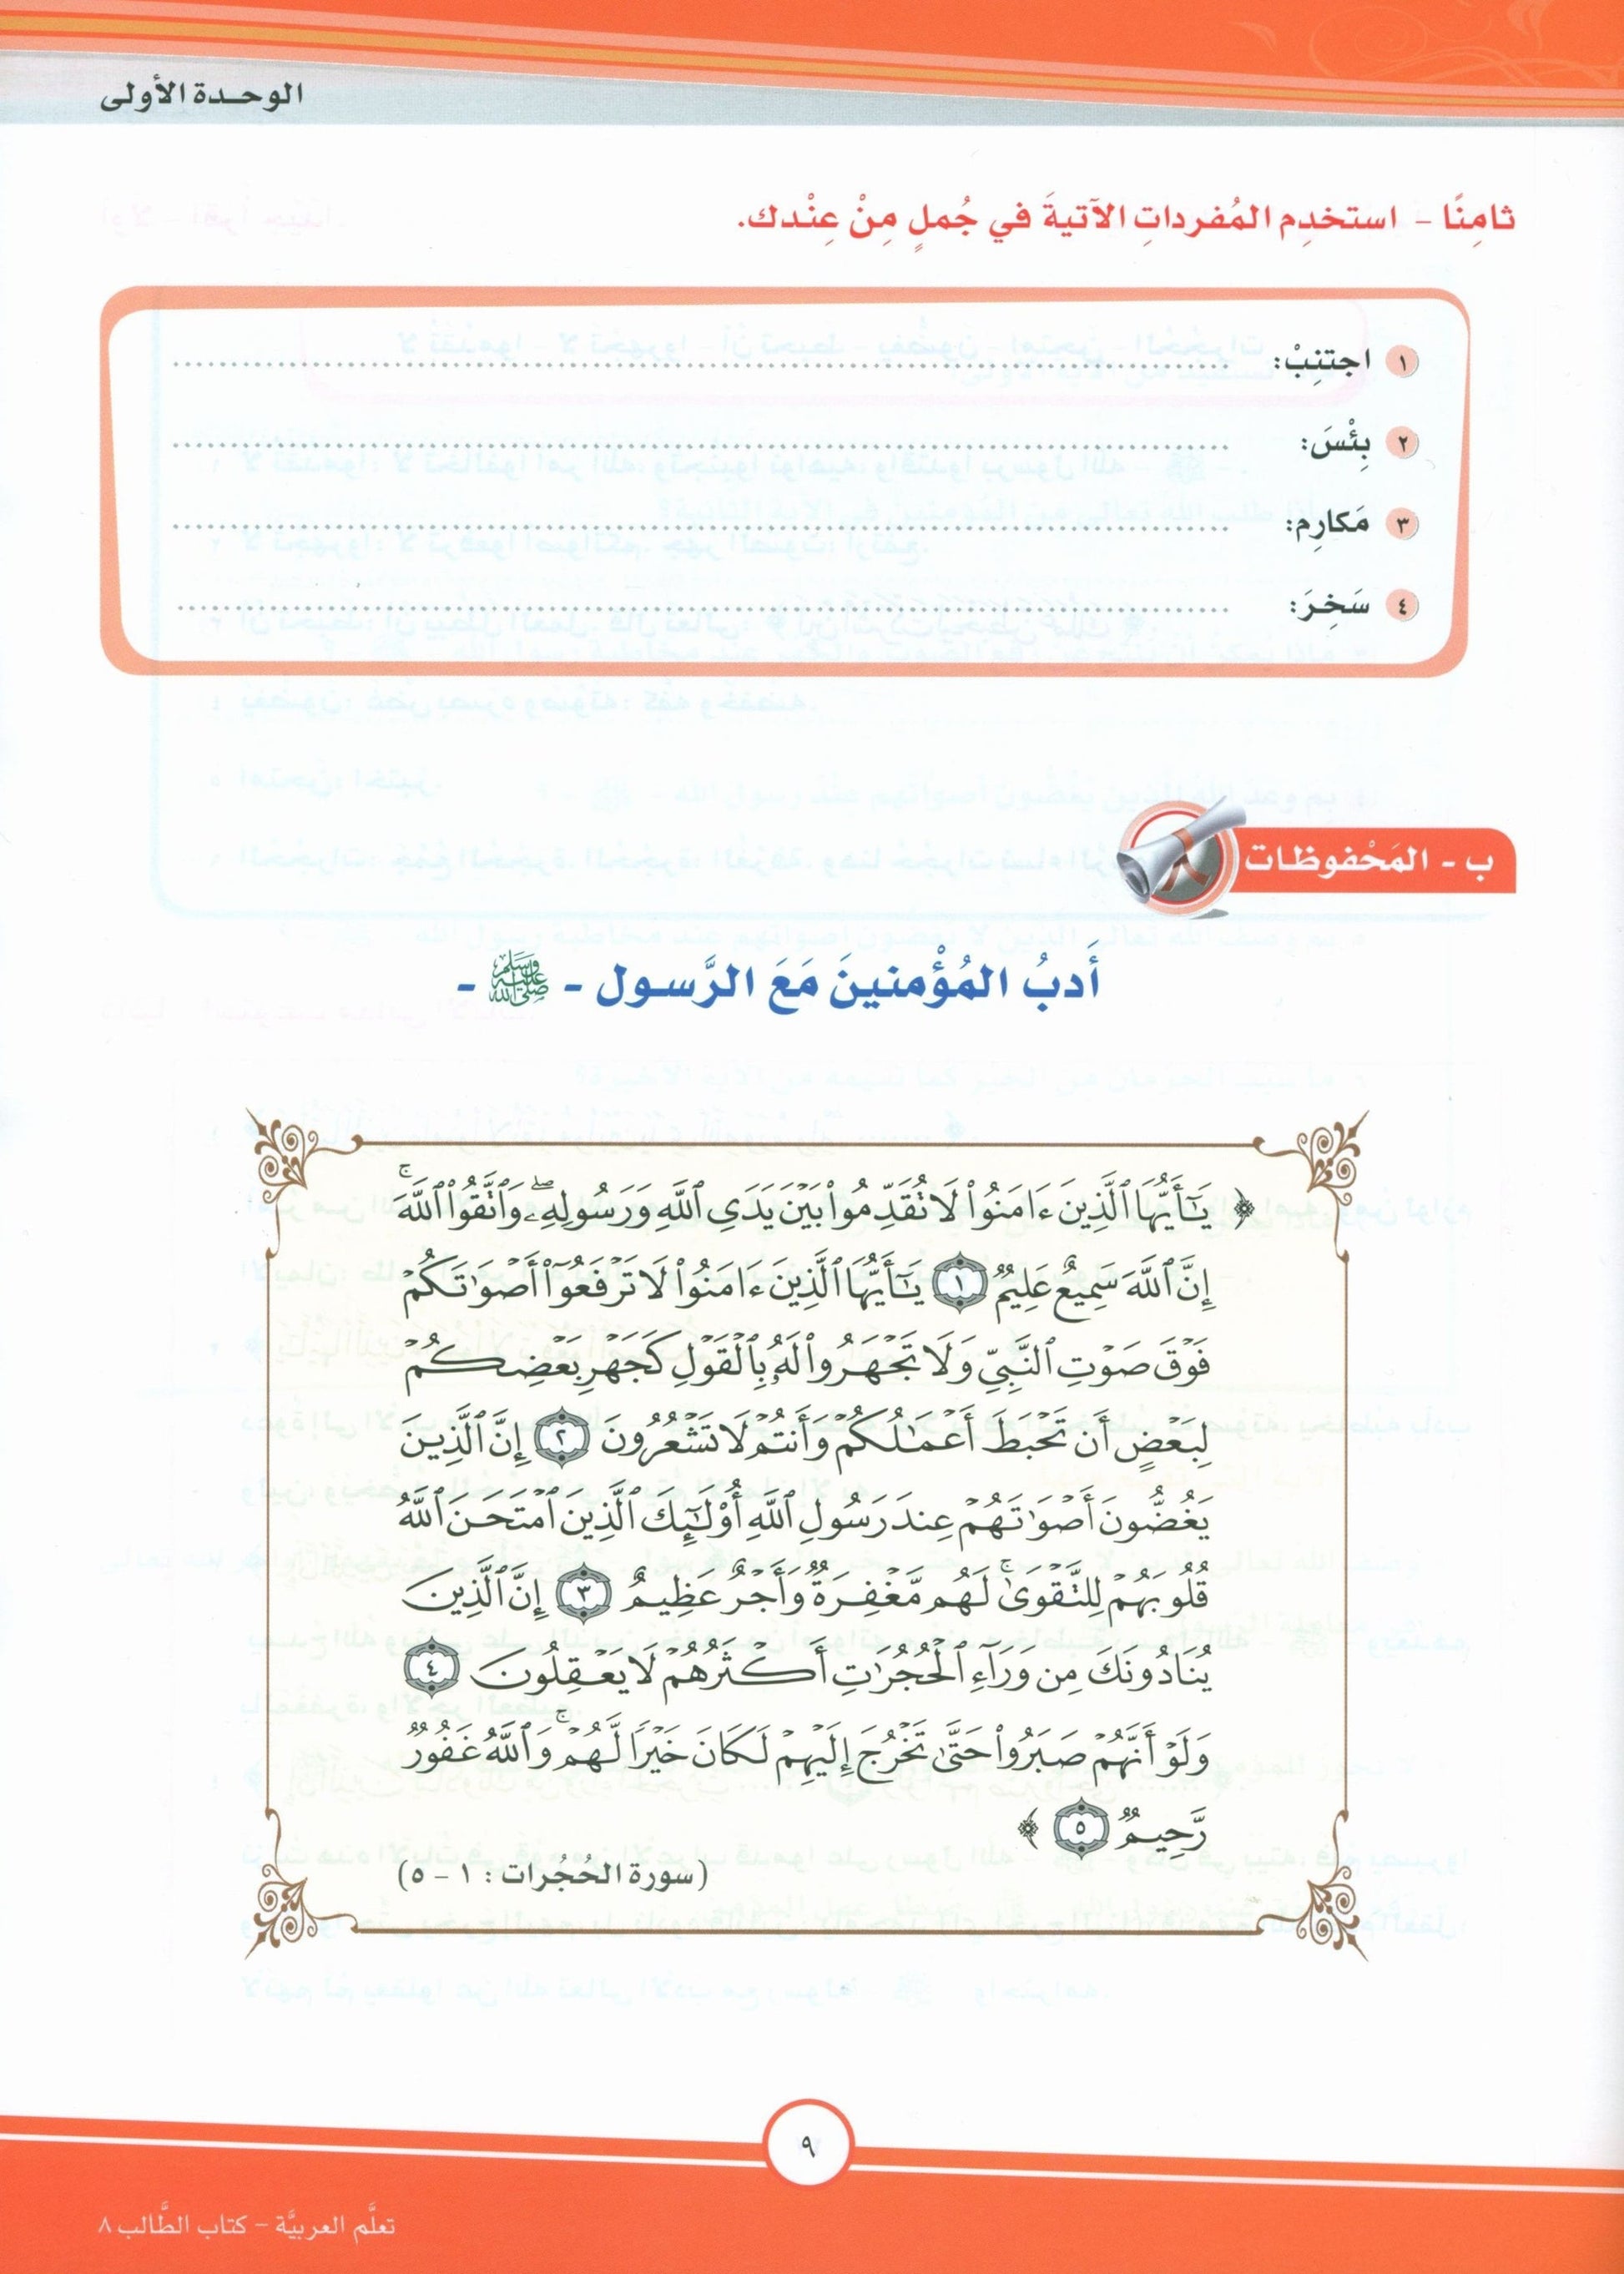 الوحدة الأولى
ثامِنًا - استخدِم المُفرداتِ الآتيةَ في جُملٍ مِنْ عِنْدك.
١ اجتنِبْ: ........................
٢ بِئْسَ: ........................
٣ مَكارِم: ........................
٤ سَخِرَ: ........................
ب - المَحْفوظات
أَدبُ المُؤْمنينَ مَعَ الرَّسول - ﷺ -
﴿ يَٰٓأَيُّهَا ٱلَّذِينَ ءَامَنُوا۟ لَا تُقَدِّمُوا۟ بَيْنَ يَدَىِ ٱللَّهِ وَرَسُولِهِۦ ۖ وَٱتَّقُوا۟ ٱللَّهَ ۚ
إِنَّ ٱللَّهَ سَمِيعٌ عَلِيمٌ ١ يَٰٓأَيُّهَا ٱلَّذِينَ ءَامَنُوا۟ لَا تَرْفَعُوٓا۟ أَصْوَٰتَكُمْ
فَوْقَ صَوْتِ ٱلنَّبِىِّ وَلَا تَجْهَرُوا۟ لَهُۥ بِٱلْقَوْلِ كَجَهْرِ بَعْضِكُمْ
لِبَعْضٍ أَن تَحْبَطَ أَعْمَٰلُكُمْ وَأَنتُمْ لَا تَشْعُرُونَ ٢ إِنَّ ٱلَّذِينَ
يَغُضُّونَ أَصْوَٰتَهُمْ عِندَ رَسُولِ ٱللَّهِ أُو۟لَٰٓئِكَ ٱلَّذِينَ ٱمْتَحَنَ ٱللَّهُ
قُلُوبَهُمْ لِلتَّقْوَىٰ ۚ لَهُم مَّغْفِرَةٌ وَأَجْرٌ عَظِيمٌ ٣ إِنَّ ٱلَّذِينَ
يُنَادُونَكَ مِن وَرَآءِ ٱلْحُجُرَٰتِ أَكْثَرُهُمْ لَا يَعْقِلُونَ ٤
وَلَوْ أَنَّهُمْ صَبَرُوا۟ حَتَّىٰ تَخْرُجَ إِلَيْهِمْ لَكَانَ خَيْرًا لَّهُمْ ۚ وَٱللَّهُ غَفُورٌ
رَّحِيمٌ ٥ ﴾
(سورة الحُجُرات : ١ - ٥)
٩
تعلَّم العربيَّة - كتاب الطَّالب ٨